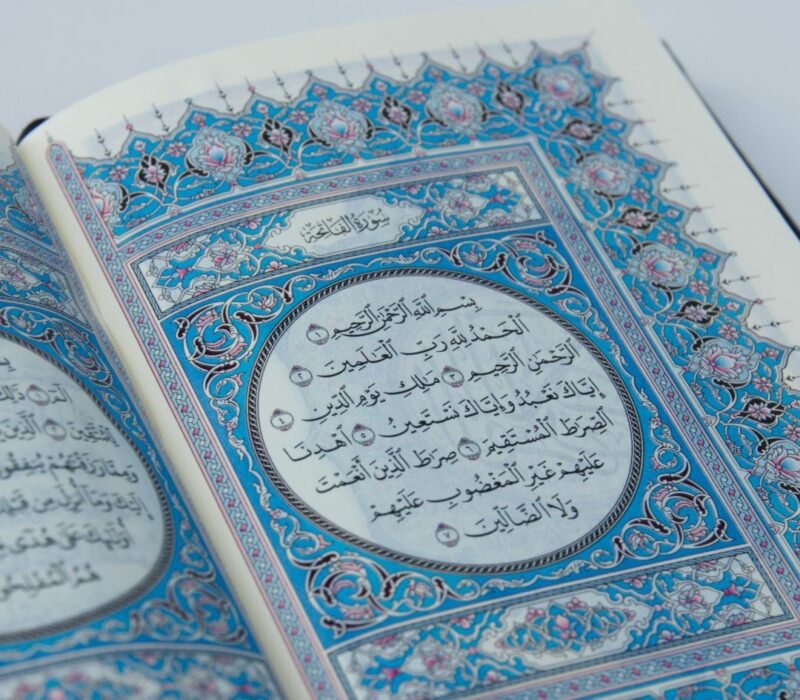 سُورَةُ الفَاتِحَةِ
بِسْمِ ٱللَّهِ ٱلرَّحْمَٰنِ ٱلرَّحِيمِ ١
ٱلْحَمْدُ لِلَّهِ رَبِّ ٱلْعَٰلَمِينَ ٢
ٱلرَّحْمَٰنِ ٱلرَّحِيمِ ٣ مَٰلِكِ يَوْمِ ٱلدِّينِ ٤
إِيَّاكَ نَعْبُدُ وَإِيَّاكَ نَسْتَعِينُ ٥ ٱهْدِنَا
ٱلصِّرَٰطَ ٱلْمُسْتَقِيمَ ٦ صِرَٰطَ ٱلَّذِينَ أَنْعَمْتَ
عَلَيْهِمْ غَيْرِ ٱلْمَغْضُوبِ عَلَيْهِمْ
وَلَا ٱلضَّآلِّينَ ٧
الٓمٓ ١ ذَٰلِكَ
ٱلَّذِينَ
وَمِمَّا رَزَقْنَٰهُمْ يُنفِقُونَ
إِلَيْكَ وَمَآ أُنزِلَ مِن
أُو۟لَٰٓئِكَ عَلَىٰ هُدًى
هُمُ ٱلْمُفْلِحُونَ